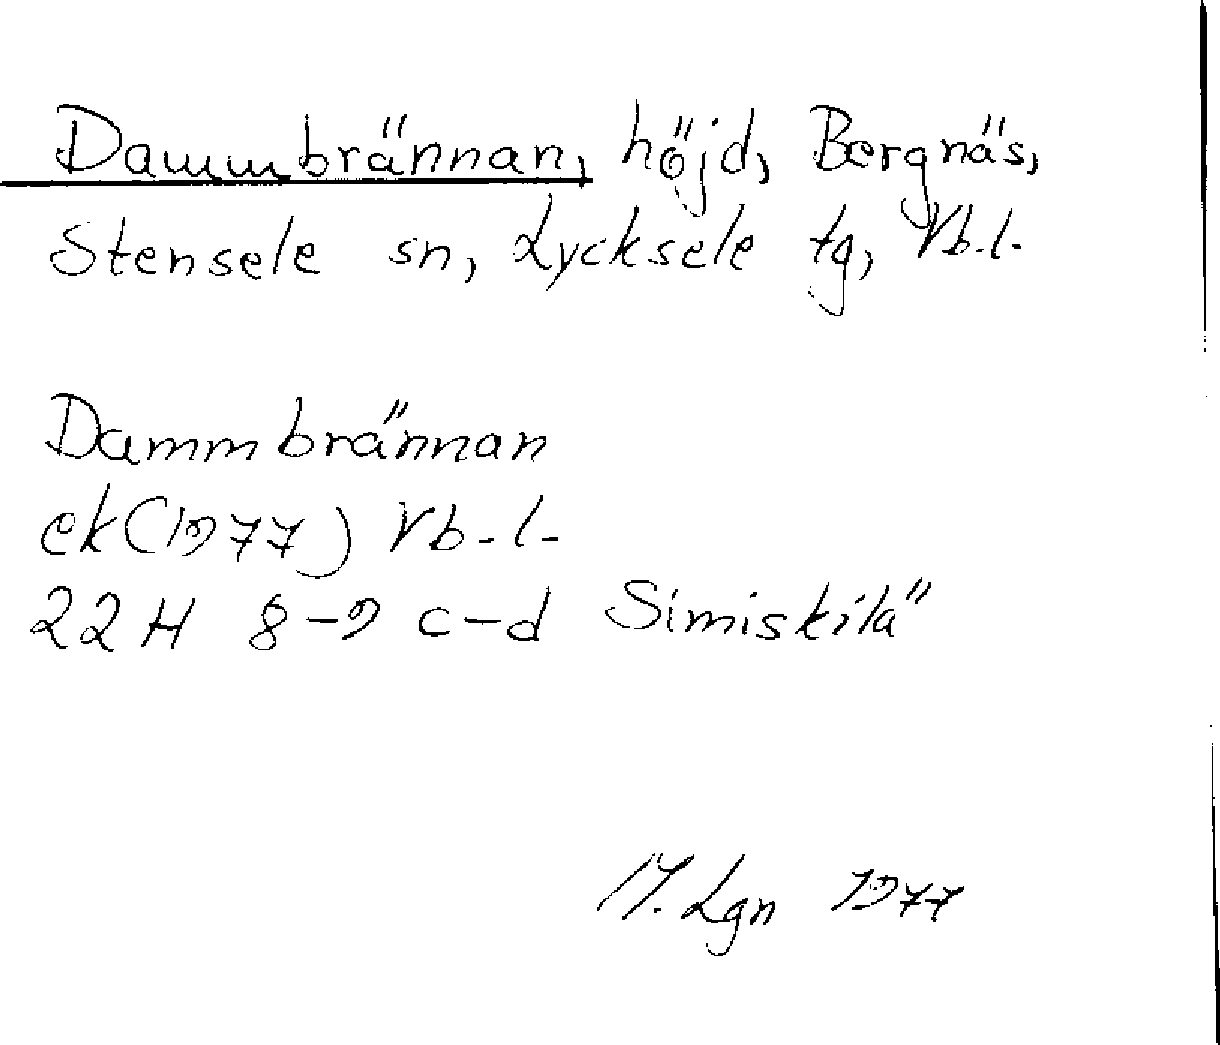 Dammbrännan, höjd, Bergnäs,
Stensele sn, Lycksele tg, Vb.l.
Dammbrännan
ek(1977) Vb.l.
22H 8-9 c-d Simiskilä
M. Lgn 1977